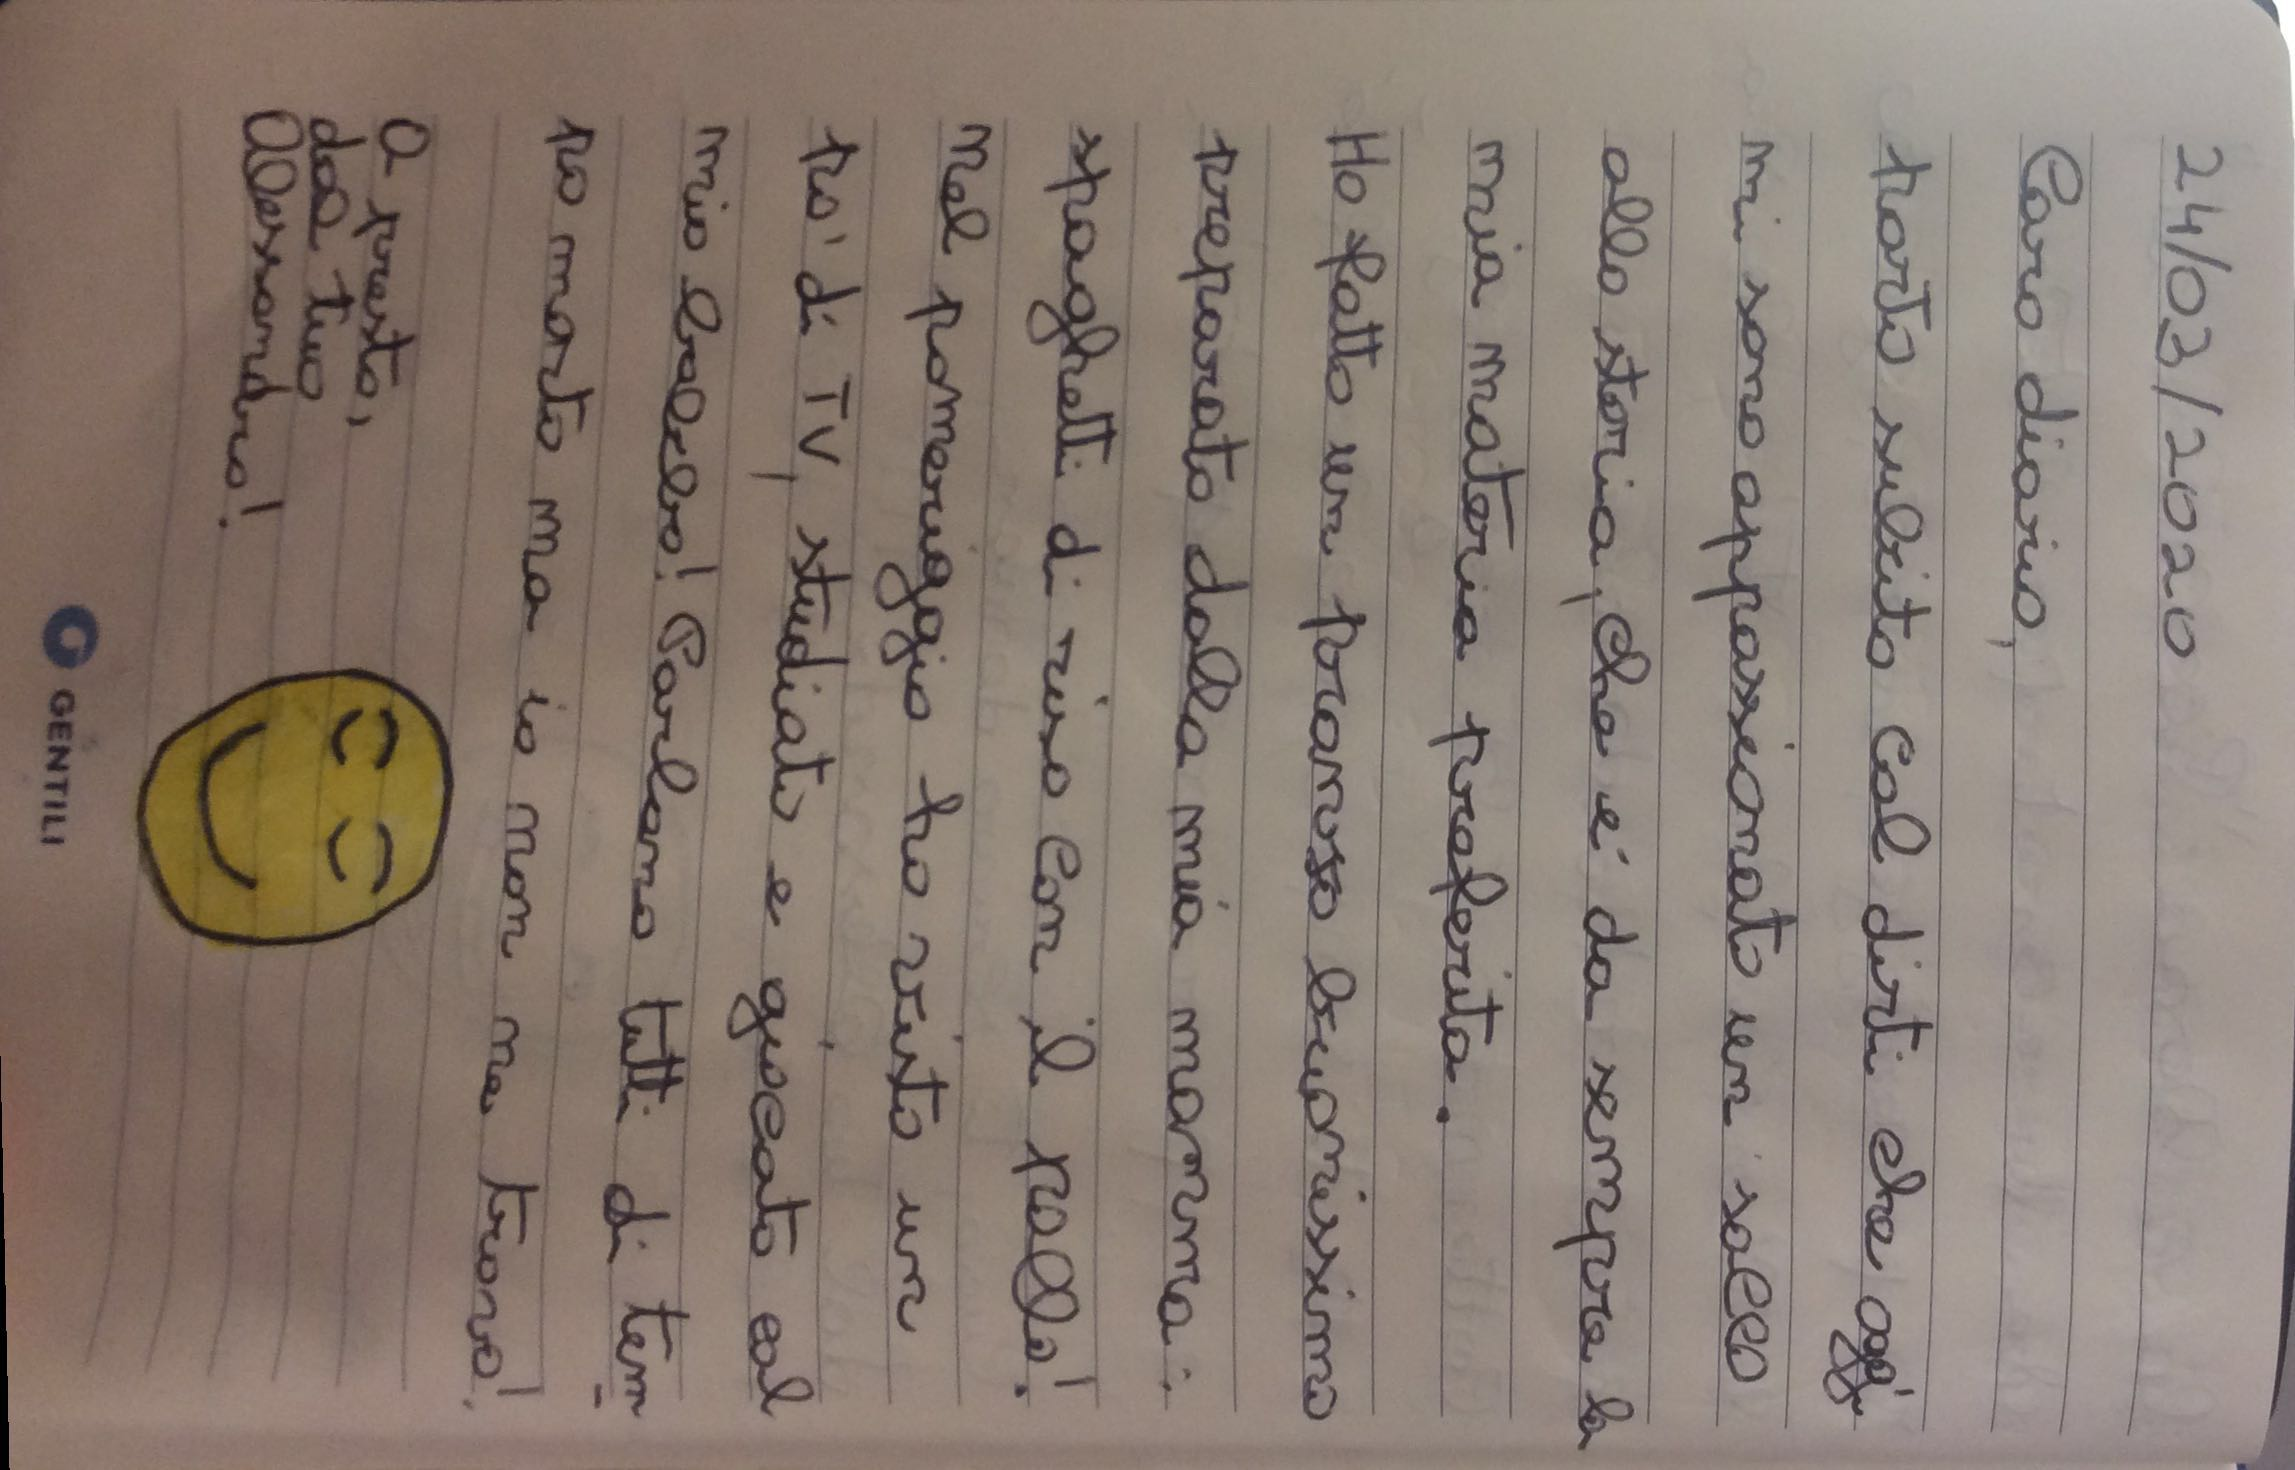 24/03/2020
Caro diario,
parto subito col dirti che oggi
mi sono appassionato un sacco
alla storia, che e' da sempre la
mia materia preferita.
Ho fatto un pranzo buonissimo
preparato dalla mia mamma:
spaghetti di riso con il pollo!
Nel pomeriggio ho visto un
po' di TV, studiato e giocato col
mio babbo! Parlano tutti di tem
po morto ma io non ne trovo!
A presto,
dal tuo
Alessandro!
GENTILI